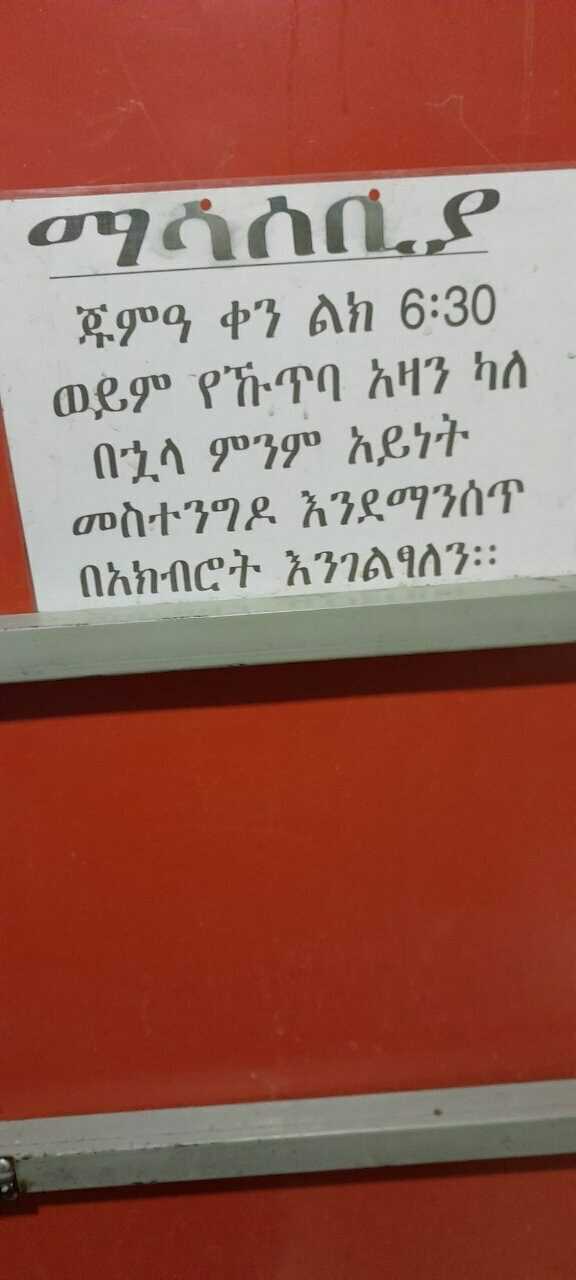 ማሳሰቢያ
ጁምዓ ቀን ልክ 6:30
ወይም የኹጥባ አዛን ካለ
በኋላ ምንም አይነት
መስተንግዶ እንደማንሰጥ
በአክብሮት እንገልፃለን።